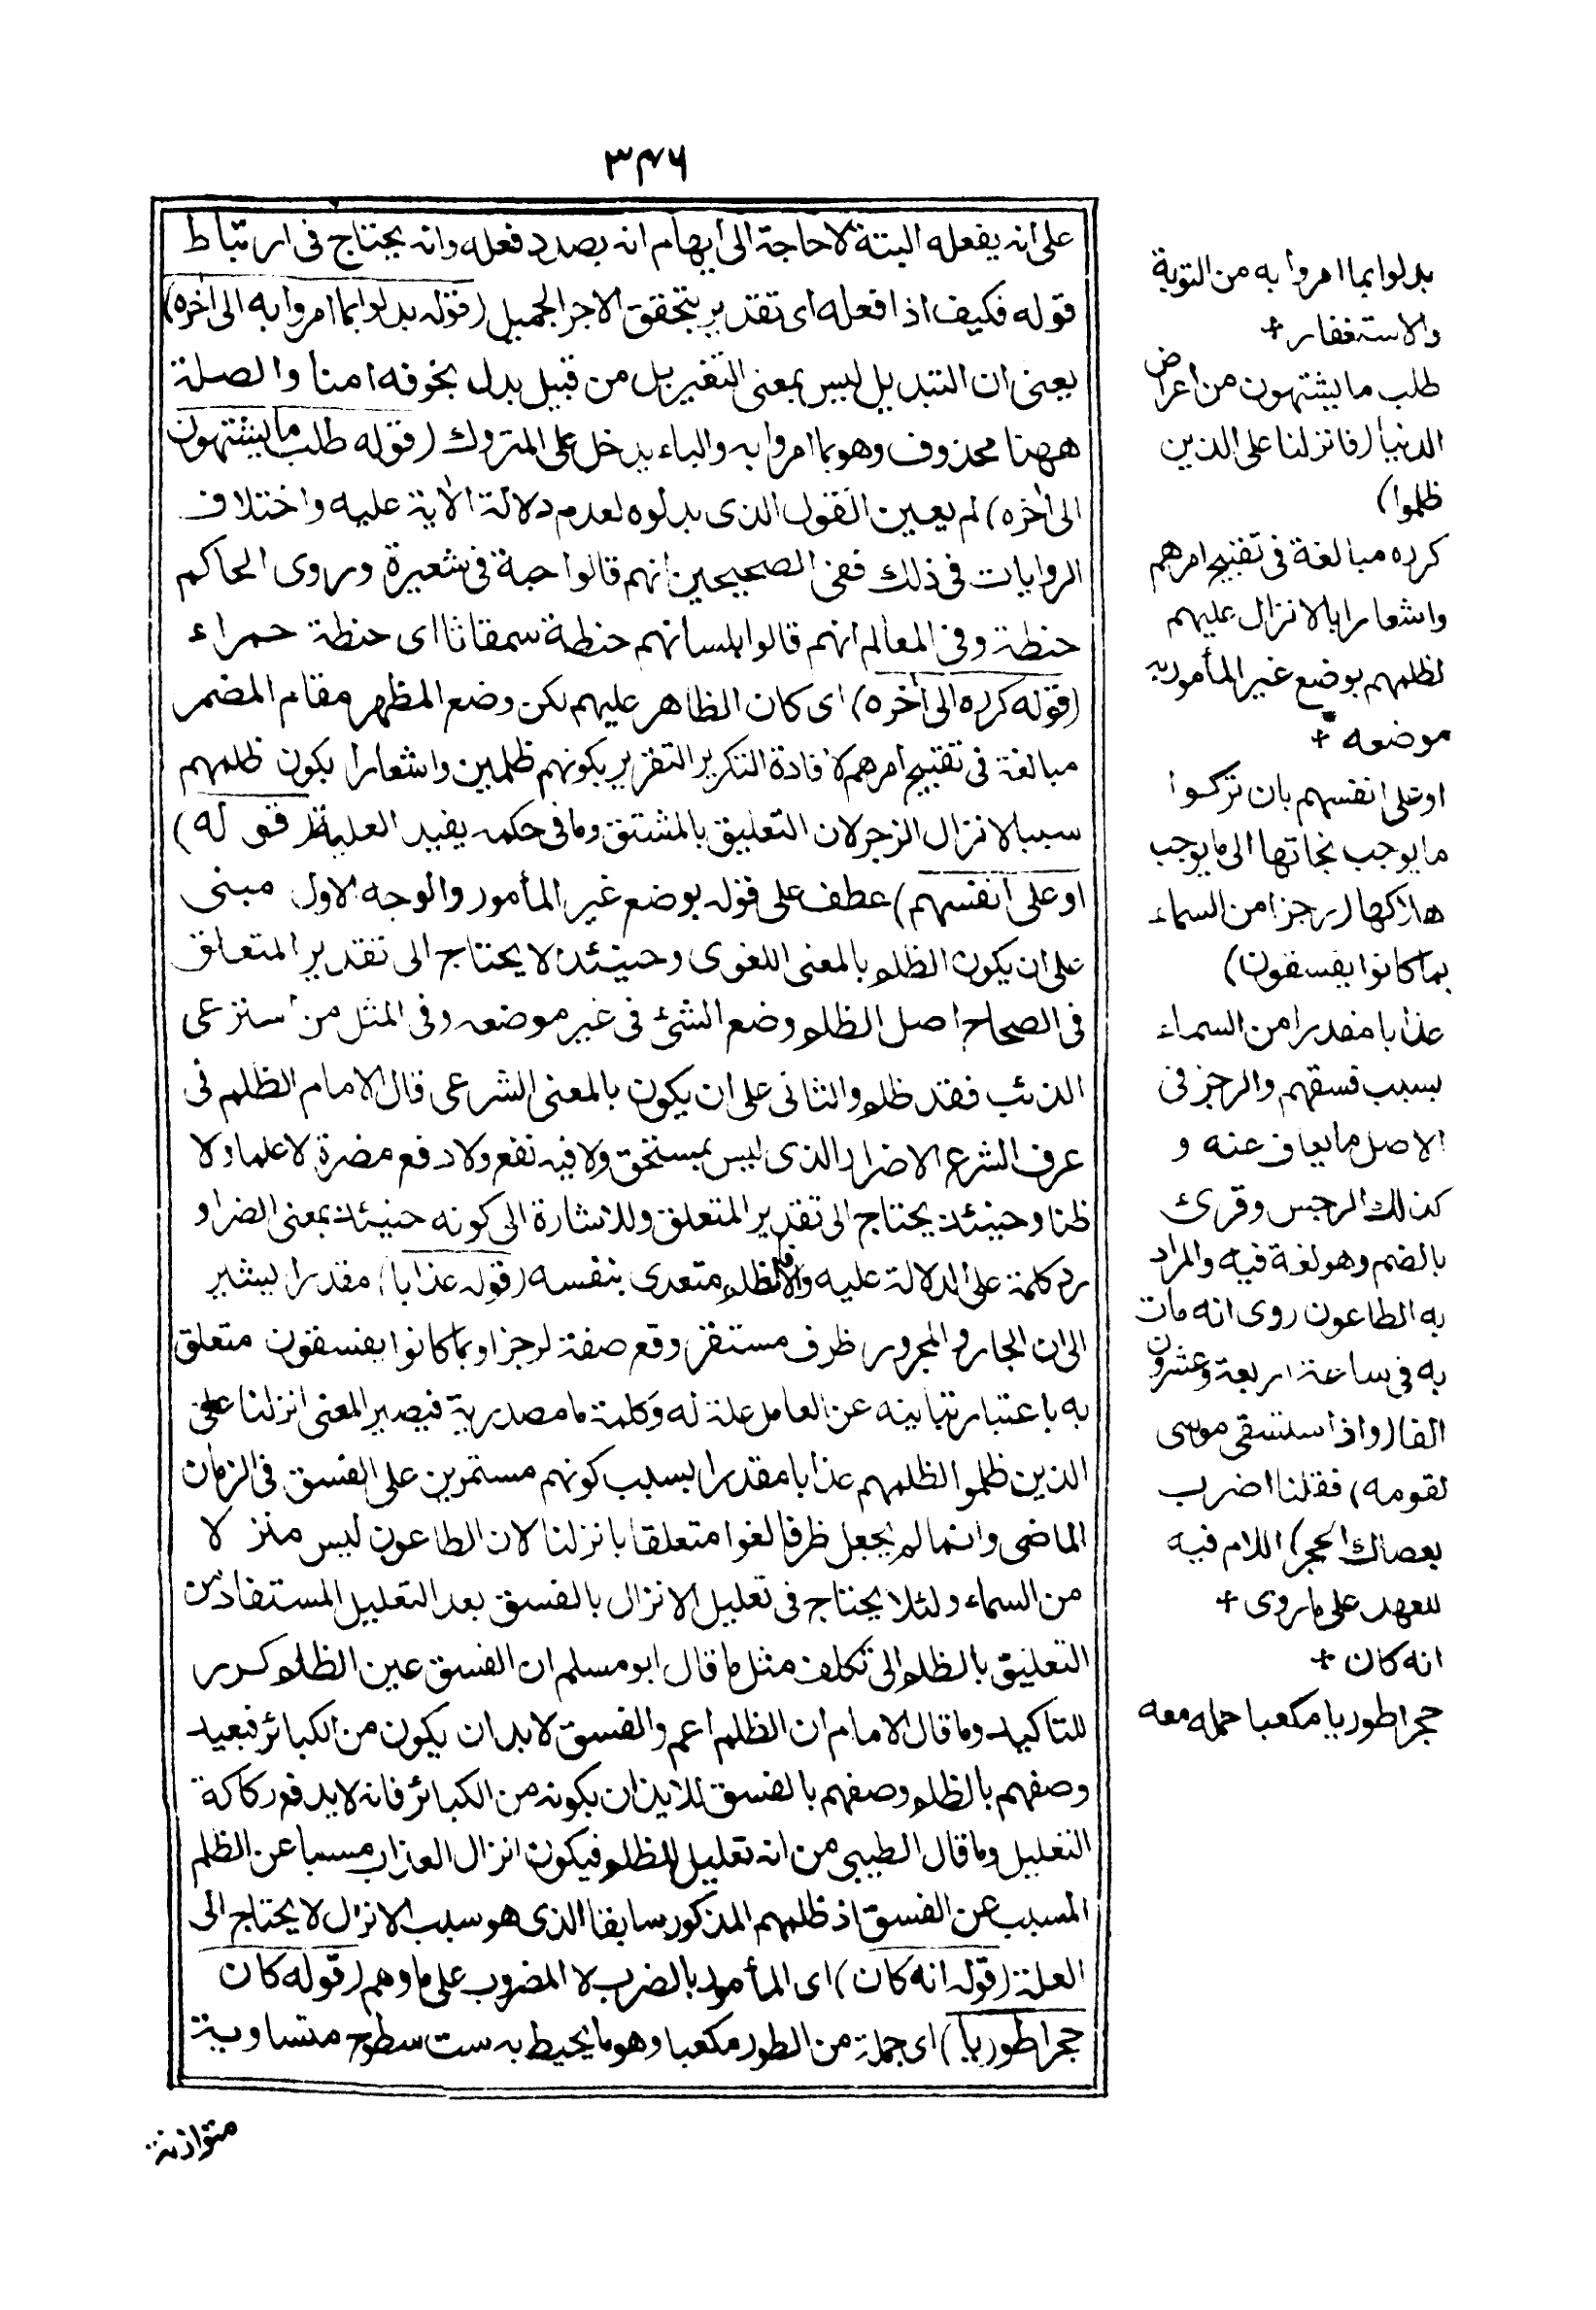 ٣٤٦
على انه يفعله البتة لا حاجة الى ايهام انه بصدد فعله وانه يحتاج فى ارتباط
قوله فكيف اذا فعله اى تقدير بتحقق الاجر الجميل (قوله بدلوا بما امروا به الى اخره)
يعنى ان التبديل ليس بمعنى التغيير بل من قبيل بدل بخوفه امنا والصلة
ههنا محذوف وهو بما امروا به والباء يدخل على المتروك (قوله طلب ما يشتهون
الى اخره) لم يعين القول الذى بدلوه لعدم دلالة الاية عليه واختلاف
الروايات فى ذلك ففى الصحيحين انهم قالوا حبة فى شعيرة وروى الحاكم
حنطة وفى المعالم انهم قالوا بلسانهم حنطة سمقاثا اى حنطة حمراء
(قوله كرره الى اخره) اى كان الظاهر عليهم لكن وضع المظهر مقام المضمر
مبالغة فى تقبيح امرهم لافادة التكرير التقرير بكونهم ظلمين واشعارا بكون ظلمهم
سببا لانزال الزجر لان التعليق بالمشتق وما فى حكمه يفيد العلية (قوله)
او على انفسهم) عطف على قوله بوضع غير المأمور والوجه الاول مبنى
على ان يكون الظلم بالمعنى اللغوى وحينئذ لا يحتاج الى تقدير المتعلق
فى الصحاح اصل الظلم وضع الشئ فى غير موضعه وفى المثل من استرعى
الذئب فقد ظلم والثانى على ان يكون بالمعنى الشرعى قال الامام الظلم فى
عرف الشرع الاضرار الذى ليس بمستحق ولا فيه نفع ولا دفع مضرة لا علما ولا
ظنا وحينئذ يحتاج الى تقدير المتعلق وللاشارة الى كونه حينئذ بمعنى الضر او
رد كلمة على للدلالة عليه والا فالظلم متعدى بنفسه (قوله عذابا) مقدرا ليشير
الى ان الجار والمجرور ظرف مستقر وقع صفة لرجزا وبما كانوا يفسقون متعلق
به باعتبار نيابته عن العامل علة له وكلمة ما مصدرية فيصير المعنى انزلنا على
الذين ظلموا لظلمهم عذابا مقدرا بسبب كونهم مستمرين على الفسق فى الزمان
الماضى وانما لم يجعل ظرفا لغوا متعلقا بانزلنا لان الطاعون ليس منزلا
من السماء ولئلا يحتاج فى تعليل الانزال بالفسق بعد التعليل المستفاد من
التعليق بالظلم الى تكلف مثل ما قال ابو مسلم ان الفسق عين الظلم كرر
للتاكيد وما قال الامام ان الظلم اعم والفسق لا بد ان يكون من الكبائر فبعيد
وصفهم بالظلم وصفهم بالفسق للايذان بكونه من الكبائر فانه لا يدفع ركاكة
التعليل وما قال الطيبى من انه تعليل للظلم فيكون انزال العذاب مسببا عن الظلم
المسبب عن الفسق اذ ظلمهم المذكور سابقا الذى هو سبب الانزال لا يحتاج الى
العلة (قوله انه كان) اى المأمور بالضرب لا المضروب على ما وهم (قوله كان
حجرا طوريا) اى جملة من الطور مكعبا وهو ما يحيط به ست سطوح متساوية
متوازنة
بدلوا بما امروا به من التوبة
والاستغفار +
طلب ما يشتهون من اعراض
الدنيا (فانزلنا على الذين
ظلموا)
كرره مبالغة فى تقبيح امرهم
واشعارا بالانزال عليهم
لظلمهم بوضع غير المأمور به
موضعه +
او على انفسهم بان تركوا
ما يوجب نجاتها الى ما يوجب
هلاكها (رجزا من السماء
بما كانوا يفسقون)
عذابا مقدرا من السماء
بسبب فسقهم والرجز فى
الاصل ما يعاف عنه و
كذلك الرجس وقرئ
بالضم وهو لغة فيه والمراد
به الطاعون روى انه مات
به فى ساعة اربعة وعشرون
الفا (واذ استسقى موسى
لقومه) فقلنا اضرب
بعصاك الحجر) اللام فيه
للعهد على ما روى +
انه كان +
حجرا طوريا مكعبا حمله معه